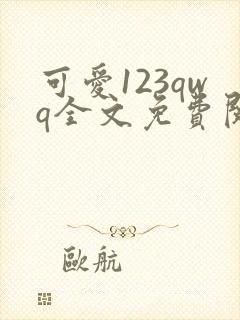 可愛123qw
q全文免費
歐航